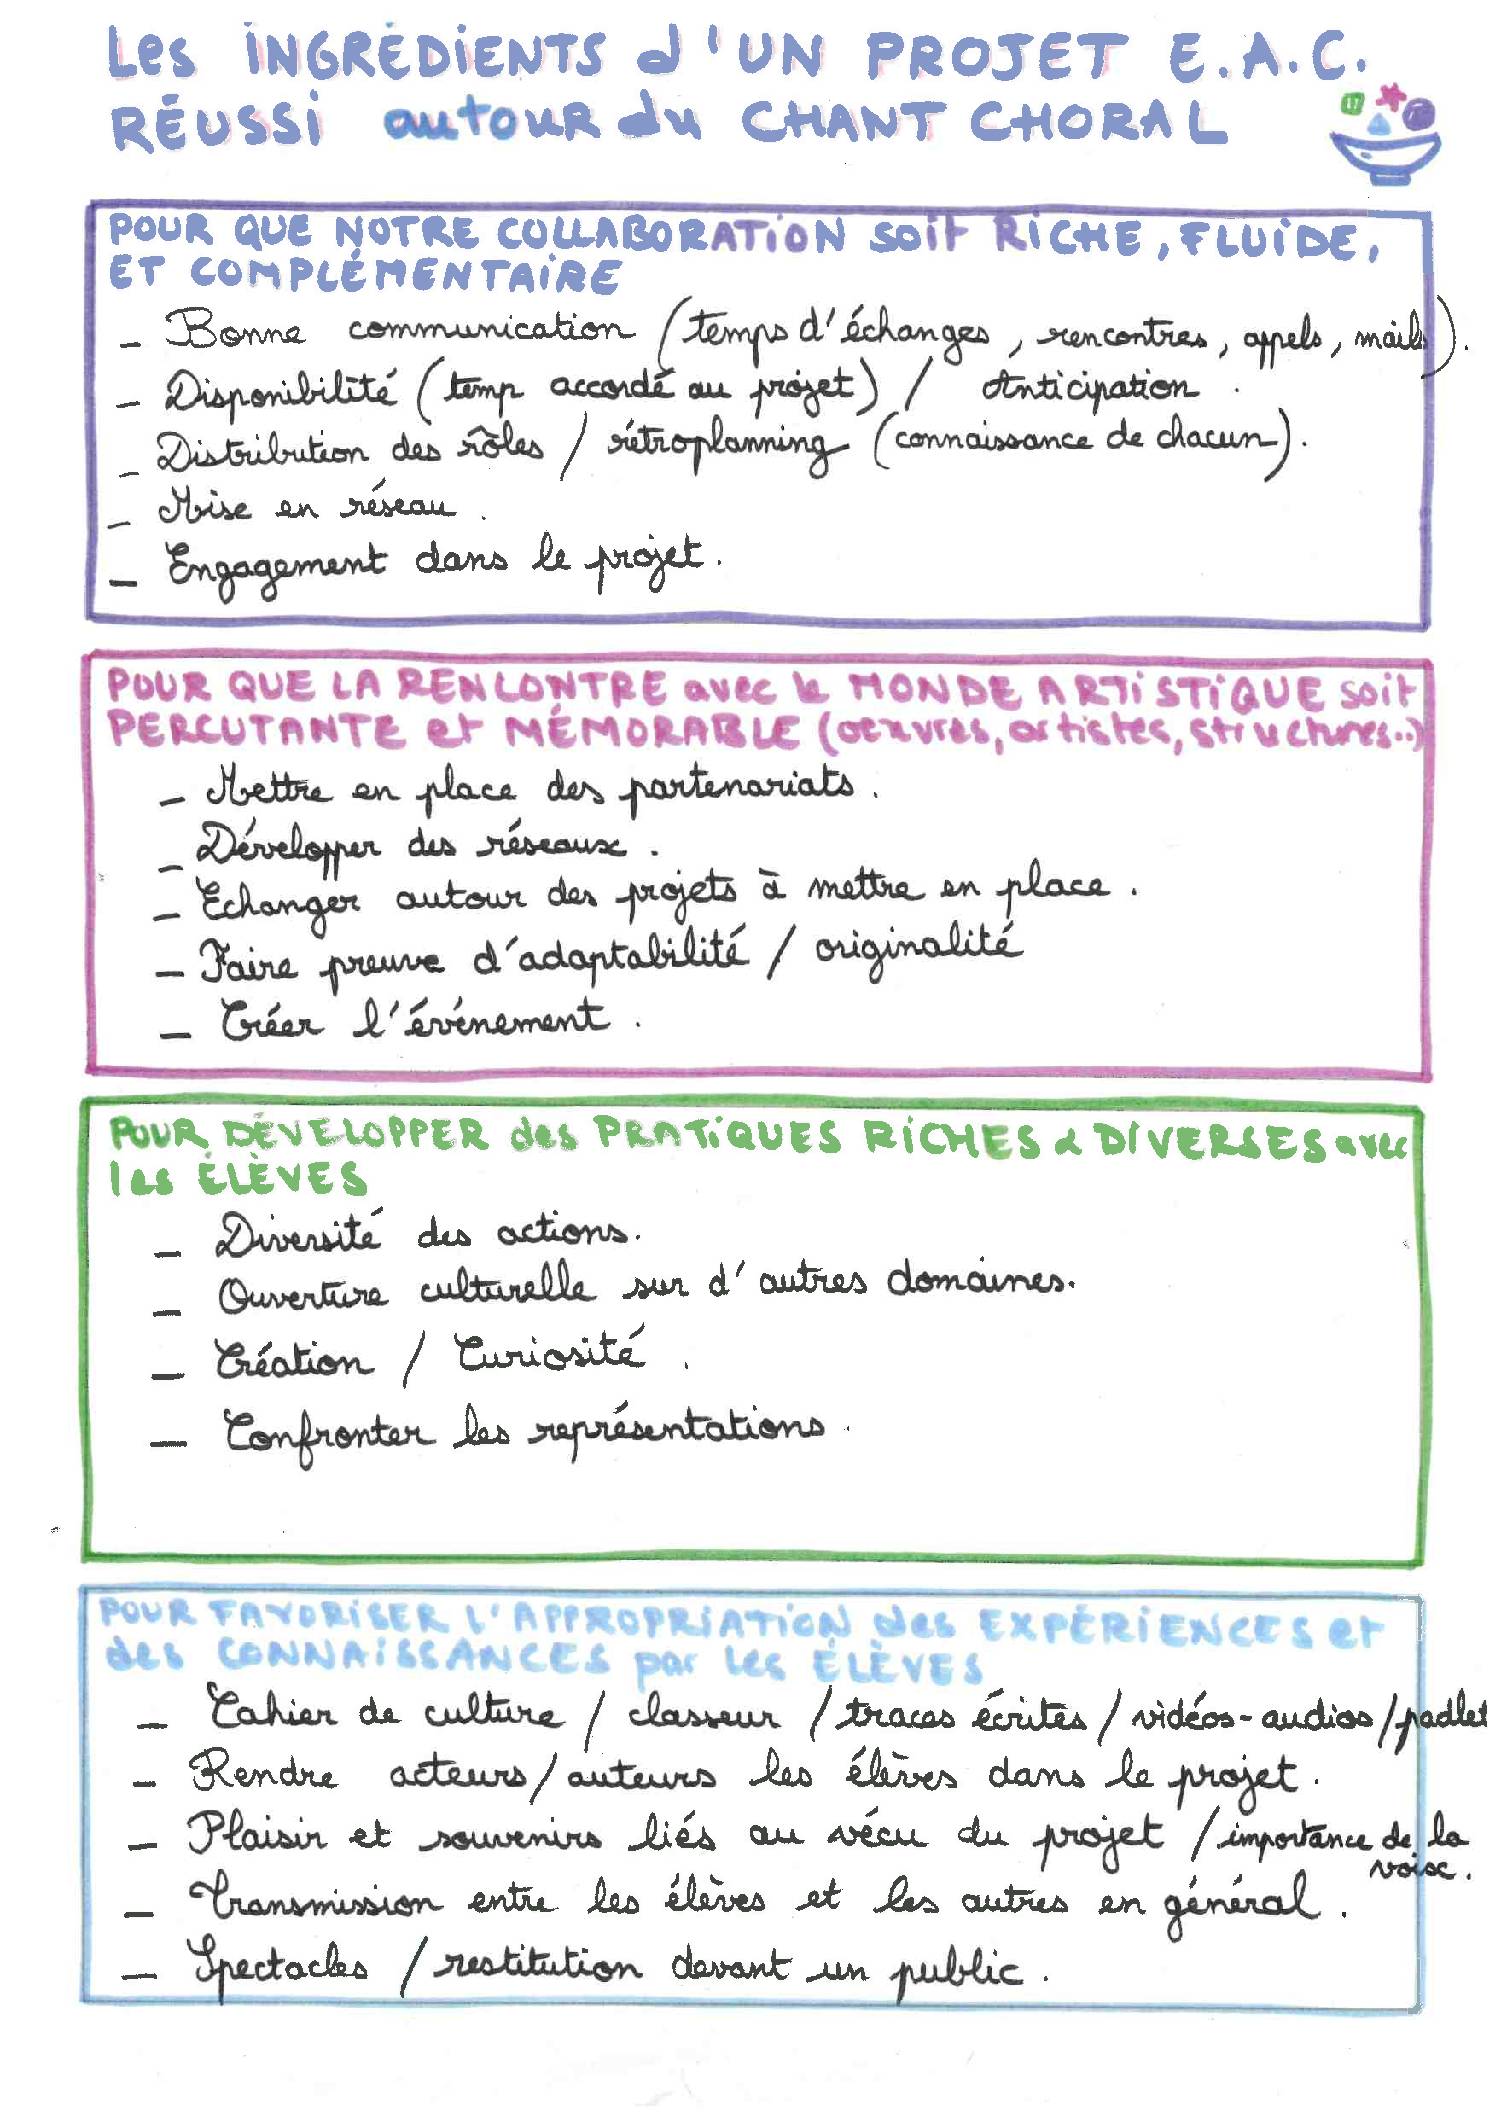 Les INGRÉDIENTS d'UN PROJET E.A.C.
RÉUSSI autour du CHANT CHORAL
POUR QUE NOTRE COLLABORATION soit RICHE, FLUIDE,
ET COMPLÉMENTAIRE
- Bonne communication (temps d'échanges, rencontres, appels, mails).
- Disponibilité (temp accordé au projet) / Anticipation.
- Distribution des rôles / rétroplanning (connaissance de chacun).
- Mise en réseau.
- Engagement dans le projet.
POUR QUE LA RENCONTRE avec le MONDE ARTISTIQUE soit
PERCUTANTE et MÉMORABLE (oeuvres, artistes, structures..)
- Mettre en place des partenariats.
- Développer des réseaux.
- Echanger autour des projets à mettre en place.
- Faire preuve d'adaptabilité / originalité
- Créer l'événement.
POUR DÉVELOPPER des PRATIQUES RICHES & DIVERSES avec
les ÉLÈVES
- Diversité des actions.
- Ouverture culturelle sur d'autres domaines.
- Création / Curiosité.
- Confronter les représentations.
POUR FAVORISER L'APPROPRIATION des EXPÉRIENCES et
des CONNAISSANCES par les ÉLÈVES
- Cahier de culture / classeur / traces écrites / vidéos-audios / padlet
- Rendre acteurs/auteurs les élèves dans le projet.
- Plaisir et souvenirs liés au vécu du projet / importance de la
voix.
- Transmission entre les élèves et les autres en général.
- Spectacles / restitution devant un public.